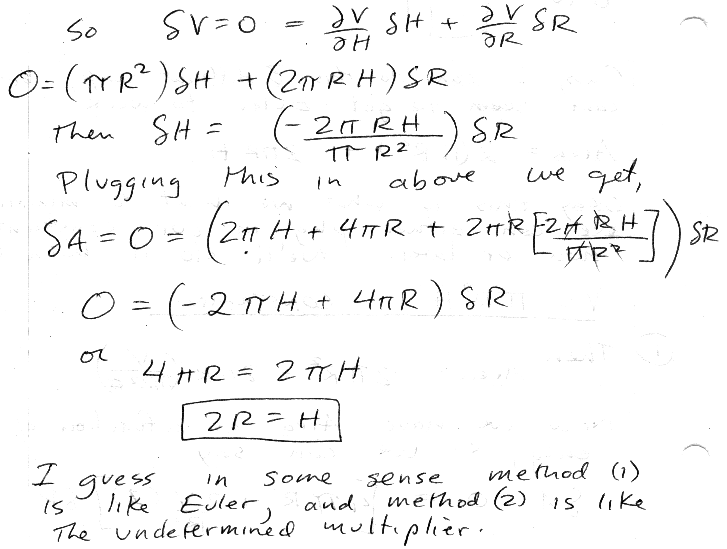 So δV=0 = ∂V/∂H δH + ∂V/∂R δR
0=(πR²)δH +(2πRH)δR
then δH = (-2πRH/πR²) δR
Plugging this in above we get,
δA=0=(2πH + 4πR + 2πR[-2πRH/πR²])δR
0=(-2πH + 4πR)δR
or
4πR = 2πH
2R=H
I guess in some sense method (1)
is like Euler, and method (2) is like
The undetermined multiplier.